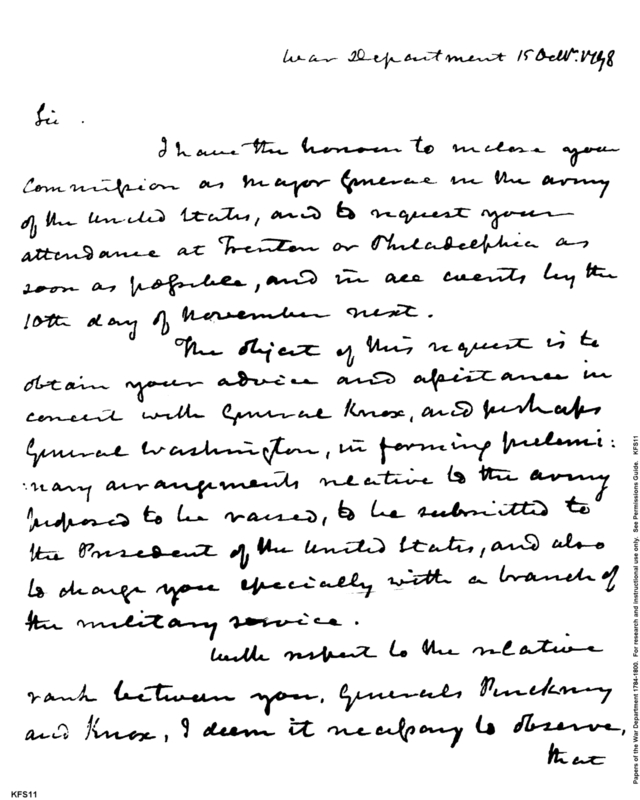 War Department 15 Octr. 1798
Sir.
I have the honour to inclose your
Commission as Major General in the army
of the United States, and to request your
attendance at Trenton or Philadelphia as
soon as possible, and in all events by the
10th day of November next.
The object of this request is to
obtain your advice and assistance in
concert with General Knox, and perhaps
General Washington, in forming prelimi:
:nary arrangements relative to the army
proposed to be raised, to be submitted to
the President of the United States, and also
to charge you specially with a branch of
the military service.
With respect to the relative
rank between you, Generals Pinckney
and Knox, I deem it necessary to observe,
that
KFS11
Papers of the War Department 1784-1800. For research and instructional use only. See Permissions Guide. KFS11